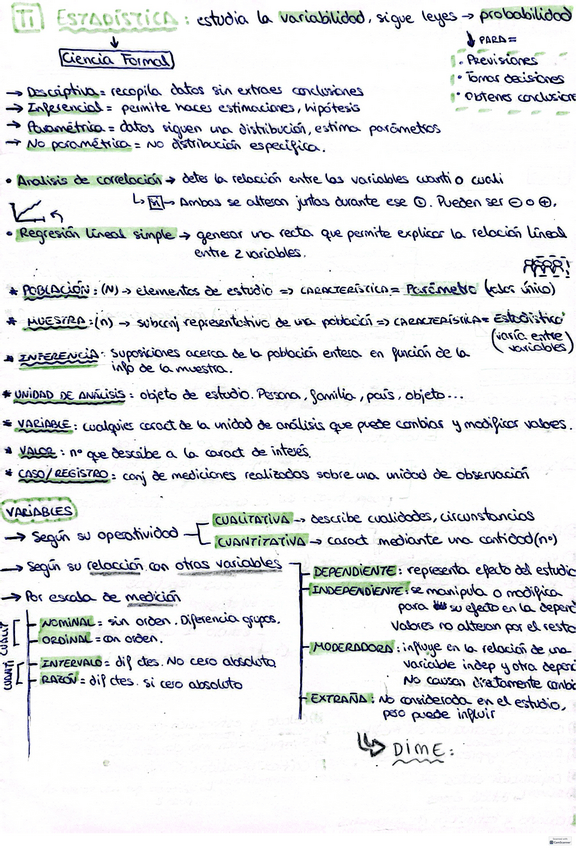 T1 ESTADÍSTICA: estudia la variabilidad, sigue leyes → probabilidad
↓ PARA=
Ciencia Formal
· Previsiones
· Tomar decisiones
· Obtener conclusione
→ Descriptiva = recopila datos sin extraer conclusiones
→ Inferencial = permite hacer estimaciones, hipótesis
→ Paramétrica = datos siguen una distribución, estima parámetros
→ No paramétrica = no distribución específica.
· Análisis de correlación → deter la relación entre las variables cuanti o cuali
↳ → Ambas se alteran juntas durante ese . Pueden ser ⊖ o ⊕.
· Regresión lineal simple → generar una recta que permite explicar la relación lineal
entre 2 variables.
* POBLACIÓN: (N) → elementos de estudio => CARACTERÍSTICA = Parámetro (valor único)
* MUESTRA: (n) → subconj representativo de una población => CARACTERÍSTICA = Estadístico
(varía entre
variables)
* INFERENCIA: Suposiciones acerca de la población entera en función de la
info de la muestra.
* UNIDAD DE ANÁLISIS: objeto de estudio. Persona, familia, país, objeto...
* VARIABLE: cualquier caract de la unidad de análisis que puede cambiar y modificar valores.
* VALOR: nº que describe a la caract de interés.
* CASO/REGISTRO: conj de mediciones realizadas sobre una unidad de observación
VARIABLES
→ Según su operatividad
CUALITATIVA → describe cualidades, circunstancias
CUANTITATIVA → caract mediante una cantidad (nº)
→ Según su relación con otras variables
DEPENDIENTE: representa efecto del estudio
INDEPENDIENTE: se manipula o modifica
para su efecto en la depend
Valores no alteran por el resto
MODERADORA: influye en la relación de una
variable indep y otra depen
No causan directamente cambio
EXTRAÑA: No considerada en el estudio,
pero puede influir
→ Por escala de medición
CUALIT
NOMINAL = sin orden. Diferencia grupos.
ORDINAL = con orden.
CUANTI
INTERVALO = dif ctes. No cero absoluto
RAZÓN = dif ctes. si cero absoluto
↳ DIME:
CamScanner